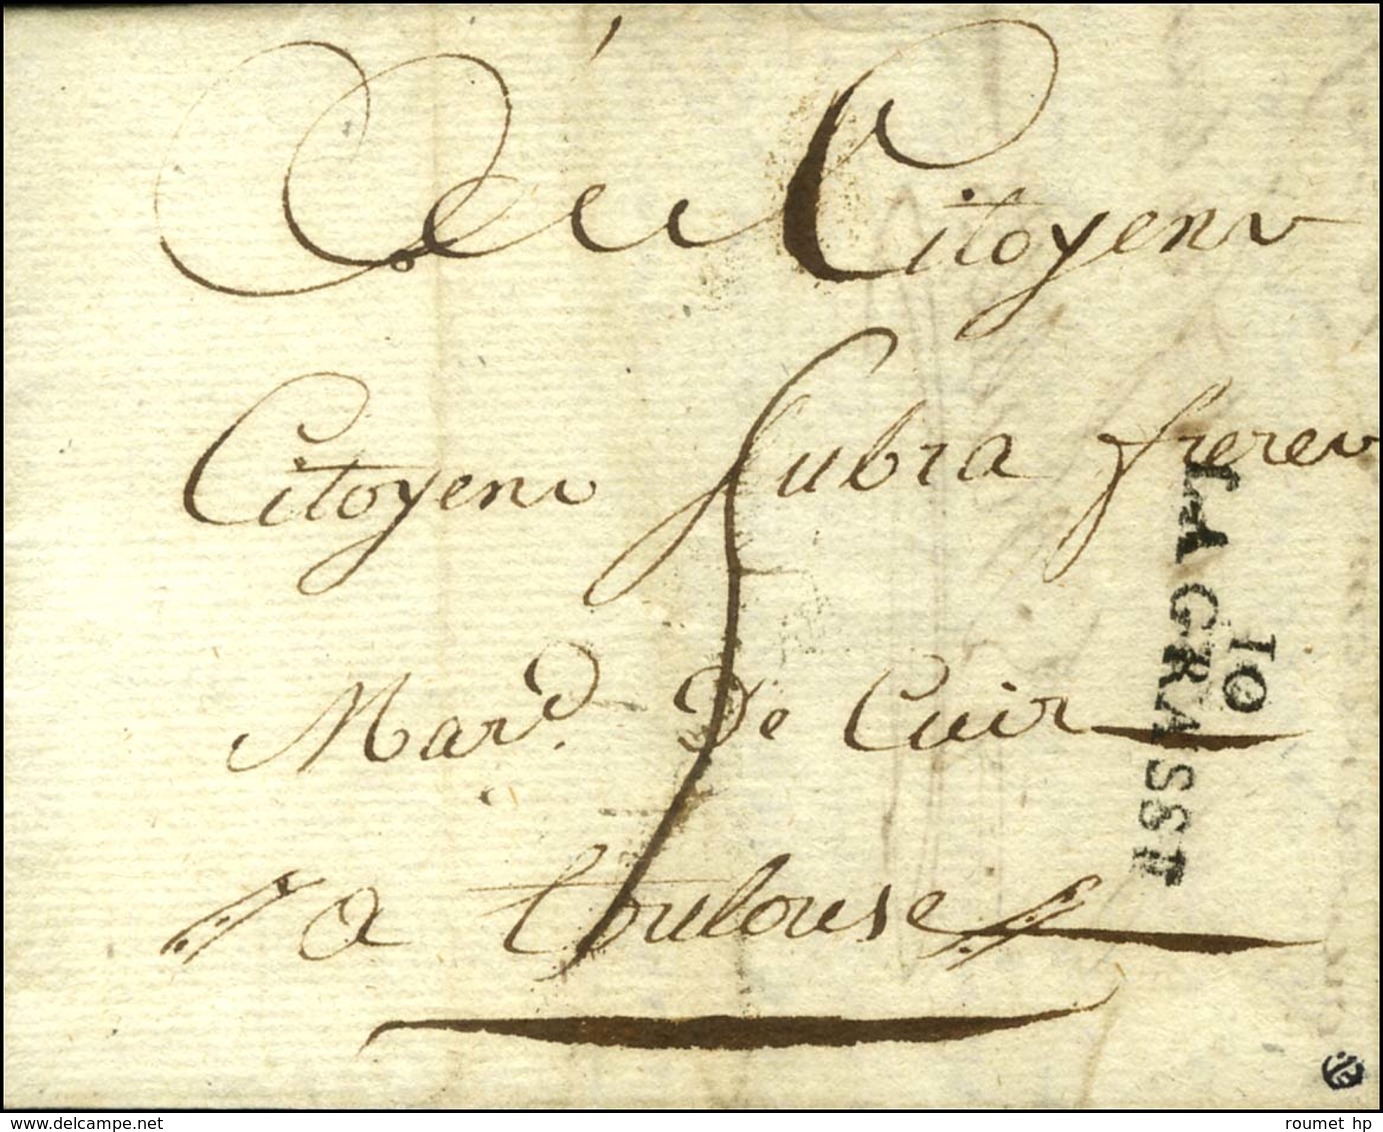 Citoyens
Citoyens Subra freres
Mard. De Cuir
a toulouse
10
LAGRASSE
delcampe.net
roumet hp